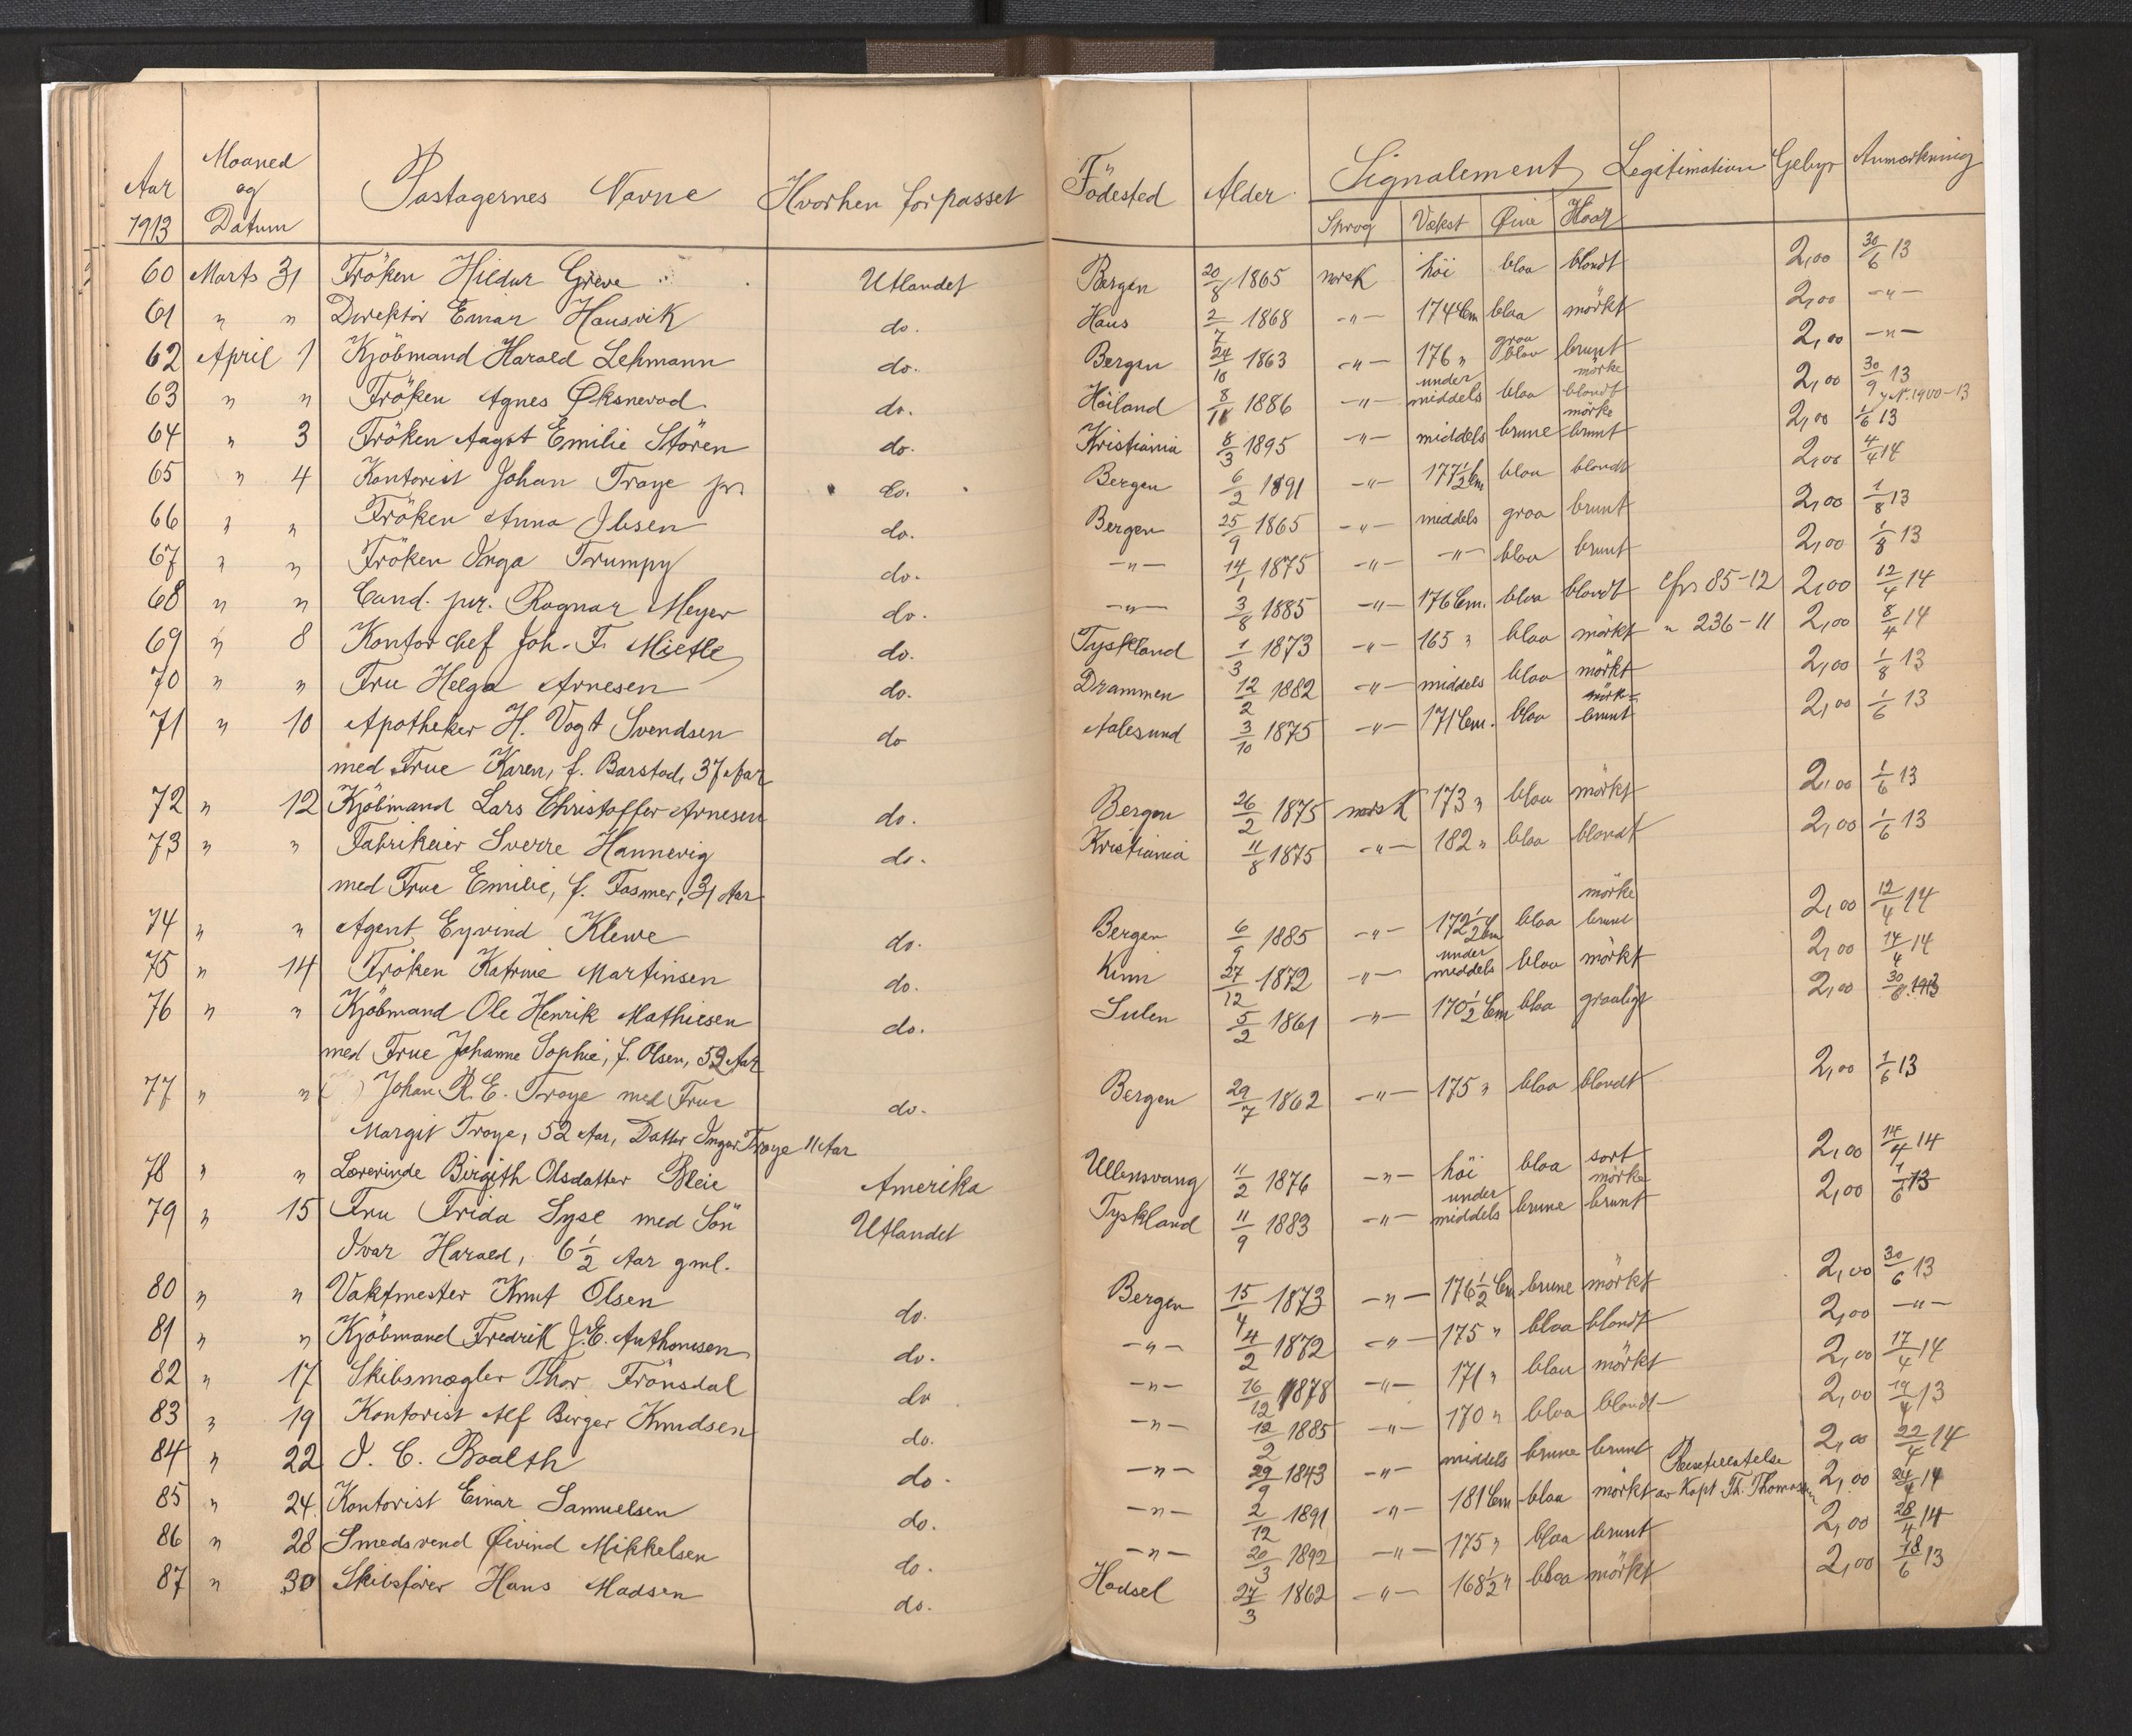 Aar 1913 Maaned og Datum Passagernes Navne Hvorhen forpasset Födested Alder Signalement Legitimation Gebyr Anmerkning
Sprog Vækst Øine Haar
60 Marts 31 Fröken Hildur Greve Utlandet Bergen 20/8 1865 norsk höi blaa blondt 2,00 30/6 13
61 " " Direktör Einar Hausvik do. Haus 2/7 1868 -"- 174 Cm blaa mörkt 2,00 -"-
62 April 1 Kjöbmand Harald Lehmann do. Bergen 24/10 1863 -"- 176 " graa blaa brunt 2,00 -"-
63 " " Fröken Agnes Øksnevad do. Höiland 8/11 1886 -"- under middels blaa mörke blondt 2,00 30/9 13
64 " 3 Fröken Aagot Emilie Stören do. Kristiania 8/3 1895 -"- middels brune mörke brunt 2,00 1/6 13
65 " 4 Kontorist Johan Troye jr. do. Bergen 6/2 1891 -"- 177 1/2 Cm blaa blondt 2,00 4/4 14
66 " " Fröken Anna Ibsen do. Bergen 25/9 1865 -"- middels graa brunt 2,00 1/8 13
67 " " Fröken Inga Trumpy do. -"- 14/1 1875 -"- -"- blaa brunt 2,00 1/8 13
68 " " Cand. jur. Ragnar Meyer do. -"- 3/8 1885 -"- 176 Cm. blaa blondt cfr 85-12 2,00 12/4 14
69 " 8 Kontorchef Joh. F. Mietle do. Tyskland 1/3 1873 -"- 165 " blaa mörkt " 236-11 2,00 8/4 14
70 " " Fru Helga Arnesen do. Drammen 12/2 1882 -"- middels blaa mörkt 2,00 1/8 13
71 " 10 Apotheker H. Vogt Svendsen do Aalesund 3/10 1875 -"- 171 Cm. blaa mörke brunt 2,00 1/6 13
med Frue Karen, f. Barstad, 37 Aar
72 " 12 Kjöbmand Lars Christoffer Arnesen do. Bergen 26/2 1875 norsk 173 " blaa mörkt 2,00 1/6 13
73 " " Fabrikeier Sverre Hannevig do. Kristiania 11/8 1875 -"- 182 " blaa blondt 2,00 1/6 13
med Frue Emilie, f. Fasmer, 31 Aar
74 " " Agent Eyvind Klewe do. Bergen 6/9 1885 -"- 172 1/2 Cm blaa mörke brunt 2,00 12/4 14
75 " 14 Fröken Katrine Martinsen do. Kinn 27/12 1872 -"- under middels blaa mörkt 2,00 14/4 14
76 " " Kjöbmand Ole Henrik Mathiesen do. Sulen 5/2 1861 -"- 170 1/2 Cm blaa graaligt 2,00 30/6 1913
med Frue Johanne Sophie, f. Olsen, 52 Aar
77 " " Johan R. E. Troye med Frue do. Bergen 29/7 1862 -"- 175 " blaa blondt 2,00 1/6 13
Margit Troye, 52 Aar, Datter Ingar Troye 11 Aar
78 " " Lærerinde Birgith Olsdatter Bleie Amerika Ullensvang 11/2 1876 -"- höi blaa sort 2,00 14/4 14
79 " 15 Fru Frida Lyse med Sön Utlandet Tyskland 11/9 1883 -"- under middels brune mörke brunt 2,00 1/6 13
Ivar Harald, 6 1/2 Aar gml.
80 " " Vaktmester Knut Olsen do. Bergen 15/4 1873 -"- 176 1/2 Cm brune mörkt 2,00 30/6 13
81 " " Kjöbmand Fredrik J. E. Anthonisen do. -"- 4/2 1872 -"- 175 " blaa blondt 2,00 -"-
82 " 17 Skibsmægler Thor Frönsdal do -"- 16/12 1878 -"- 171 " blaa mörkt 2,00 17/4 14
83 " 19 Kontorist Alf Birger Knudsen do. -"- 12/2 1885 -"- 170 " blaa blondt 2,00 19/4 13
84 " 22 I. C. Baalth do. -"- 29/9 1843 -"- middels brune brunt 2,00 22/4 14
85 " 24. Kontorist Einar Samuelsen do. -"- 2/12 1891 -"- 181 Cm blaa mörkt Reisetillatelse av Kapt Th. Thomassen 2,00 24/4 14
86 " 28 Smedsvend Øivind Mikkelsen do. -"- 20/3 1892 -"- 175 " blaa brunt 2,00 28/4 14
87 " 30 Skibsförer Hans Madsen do. Hadsel 27/3 1862 -"- 168 1/2 " blaa mörkt 2,00 18/6 13